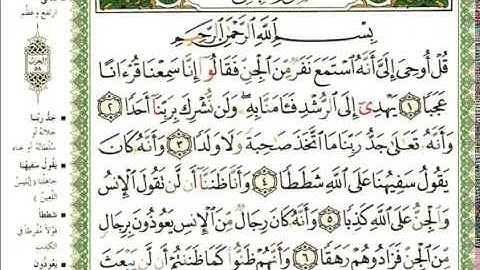 بِسْمِ اللَّهِ الرَّحْمَٰنِ الرَّحِيمِ
قُلْ أُوحِيَ إِلَيَّ أَنَّهُ ٱسْتَمَعَ نَفَرٌ مِّنَ ٱلْجِنِّ فَقَالُوٓا۟ إِنَّا سَمِعْنَا قُرْءَانًا
عَجَبًا ١ يَهْدِىٓ إِلَى ٱلرُّشْدِ فَـَٔامَنَّا بِهِۦ وَلَن نُّشْرِكَ بِرَبِّنَآ أَحَدًا ٢
وَأَنَّهُۥ تَعَٰلَىٰ جَدُّ رَبِّنَا مَا ٱتَّخَذَ صَٰحِبَةً وَلَا وَلَدًا ٣ وَأَنَّهُۥ كَانَ
يَقُولُ سَفِيهُنَا عَلَى ٱللَّهِ شَطَطًا ٤ وَأَنَّا ظَنَنَّآ أَن لَّن تَقُولَ ٱلْإِنسُ
وَٱلْجِنُّ عَلَى ٱللَّهِ كَذِبًا ٥ وَأَنَّهُۥ كَانَ رِجَالٌ مِّنَ ٱلْإِنسِ يَعُوذُونَ بِرِجَالٍ
مِّنَ ٱلْجِنِّ فَزَادُوهُمْ رَهَقًا ٦ وَأَنَّهُمْ ظَنُّوا۟ كَمَا ظَنَنتُمْ أَن لَّن يَبْعَثَ
ارتفع وعظم
الحزب
٥٨
جَدُّ رَبِّنَا
جلاله أو
سلطانه أو غناه
يَقُولُ سَفِيهُنَا
جاهلنا (إبليس
اللعين)
شَطَطًا
قولا مفرطا في
الكذب
يَعُوذُونَ